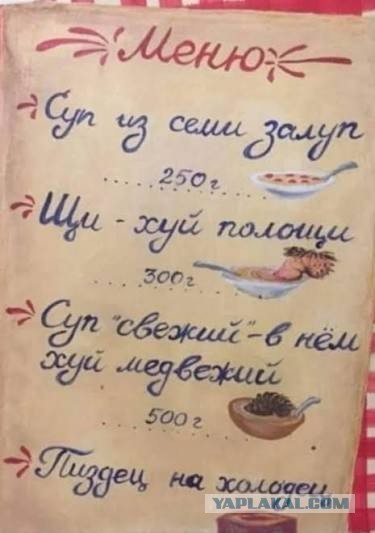 Меню
Суп из семи залуп
250г
Щи - хуй полощи
300г
Суп "свежий" - в нём
хуй медвежий
500г
Пиздец на холодец
YAPLAKAL.COM